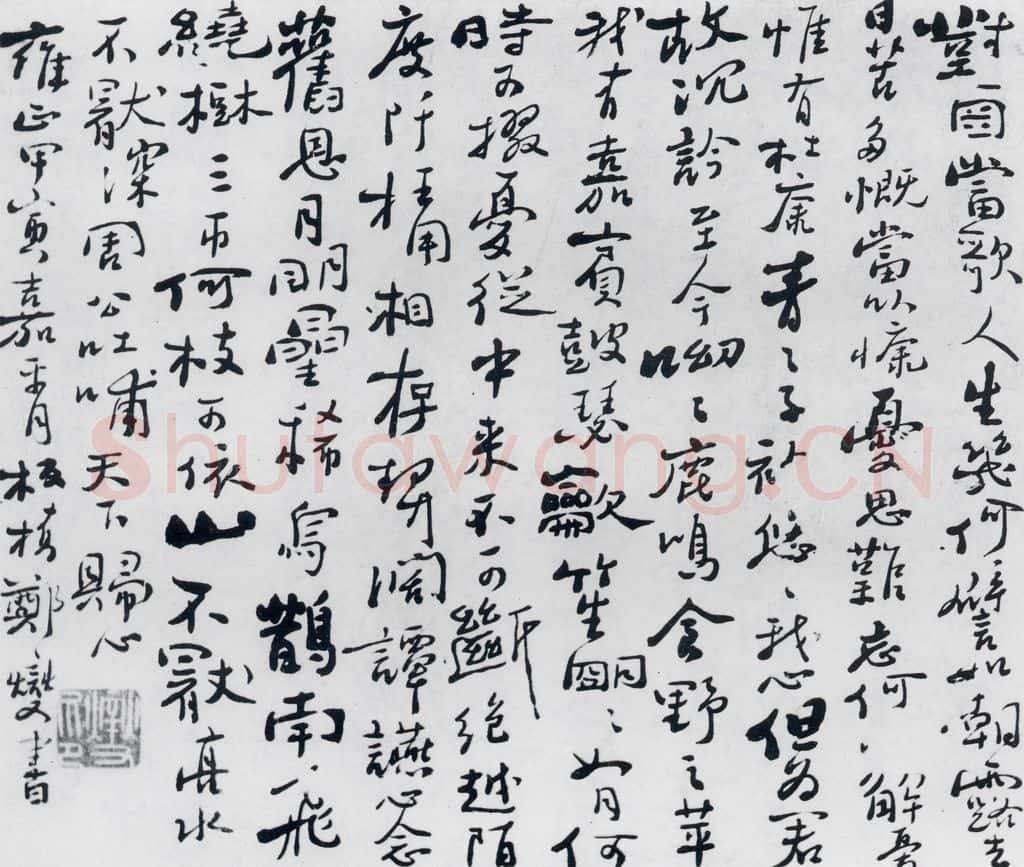 對酒當歌人生幾何譬如朝露去
日苦多慨當以慷憂思難忘何以解憂
惟有杜康青々子衿悠々我心但為君
故沉吟至今呦々鹿鳴食野之苹
我有嘉賓鼓瑟龡笙明々如月何
時可掇憂從中来不可斷絕越陌
度阡枉用相存契闊譚讌心念
舊恩月明星稀烏鵲南飛
繞樹三帀何枝可依山不厭高水
不厭深周公吐哺天下歸心
雍正甲寅嘉平月板橋鄭燮書
Shufawang.CN